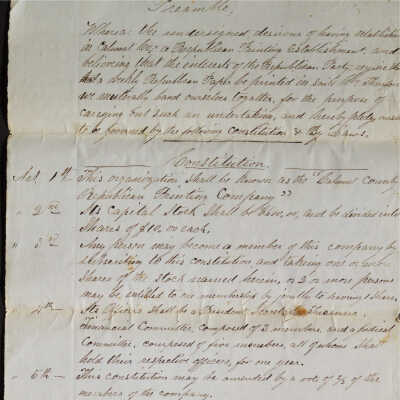 Preamble,
Whereas the undersigned, desirous of having established
in Calumet a Republican Printing Establishment, and
believing that the interests of the Republican Party require
that a weekly Republican Paper be printed in said
we mutually band ourselves together, for the purpose of
carrying out such an undertaking, and hereby pledge
to be governed by the following constitution & By Laws.
Constitution
Art 1st This organization shall be known as the "Calumet County
Republican Printing Company"
" 2nd Its Capital Stock shall be and be divided into
Shares of $10, each.
" 3rd Any Person may become a member of this company by
subscribing to this constitution and taking one or more
Shares of the Stock named herein, or 2 or more persons
may be entitled to one membership by jointly having 1 share.
" 4th Its Officers shall be a President, Secretary Treasurer,
Financial Committee, composed of 2 members, and a Judicial
Committee, composed of five members, all of whom shall
hold their respective offices, for one year.
" 5th This constitution may be amended by a vote of 2/3 of the
members of the company.